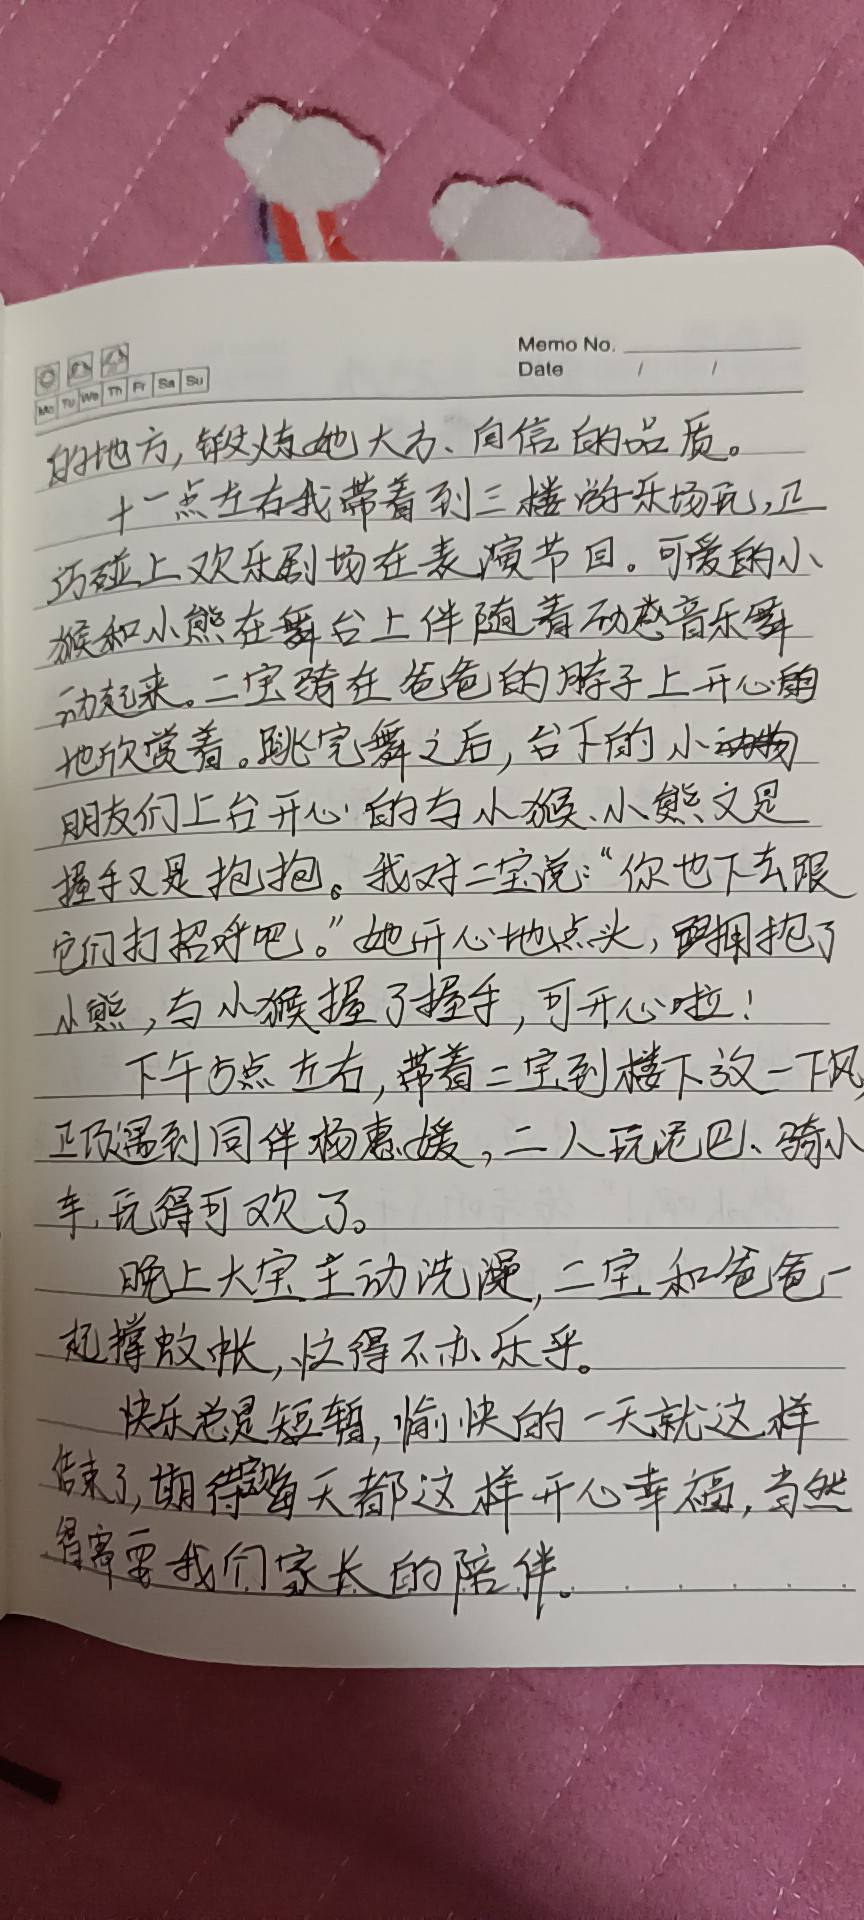 Memo No.
Date / /
Mo Tu We Th Fr Sa Su
的地方,锻炼她大方、自信的品质。
十一点左右我带着到三楼游乐场玩,正
巧碰上欢乐剧场在表演节目。可爱的小
猴和小熊在舞台上伴随着动感音乐舞
动起来。二宝骑在爸爸的脖子上开心
地欣赏着。跳完舞之后,台下的小
朋友们上台开心的与小猴、小熊又是
握手又是抱抱。我对二宝说:“你也下去跟
它们打招呼吧。”她开心地点头,拥抱了
小熊,与小猴握了握手,可开心啦!
下午5点左右,带着二宝到楼下放一下风,
正巧遇到同伴杨惠媛,二人玩泥巴、骑小
车,玩得可欢了。
晚上大宝主动洗澡,二宝和爸爸一
起撑蚊帐,忙得不亦乐乎。
快乐总是短暂,愉快的一天就这样
结束了,期待每天都这样开心幸福,当然
得需要我们家长的陪伴。